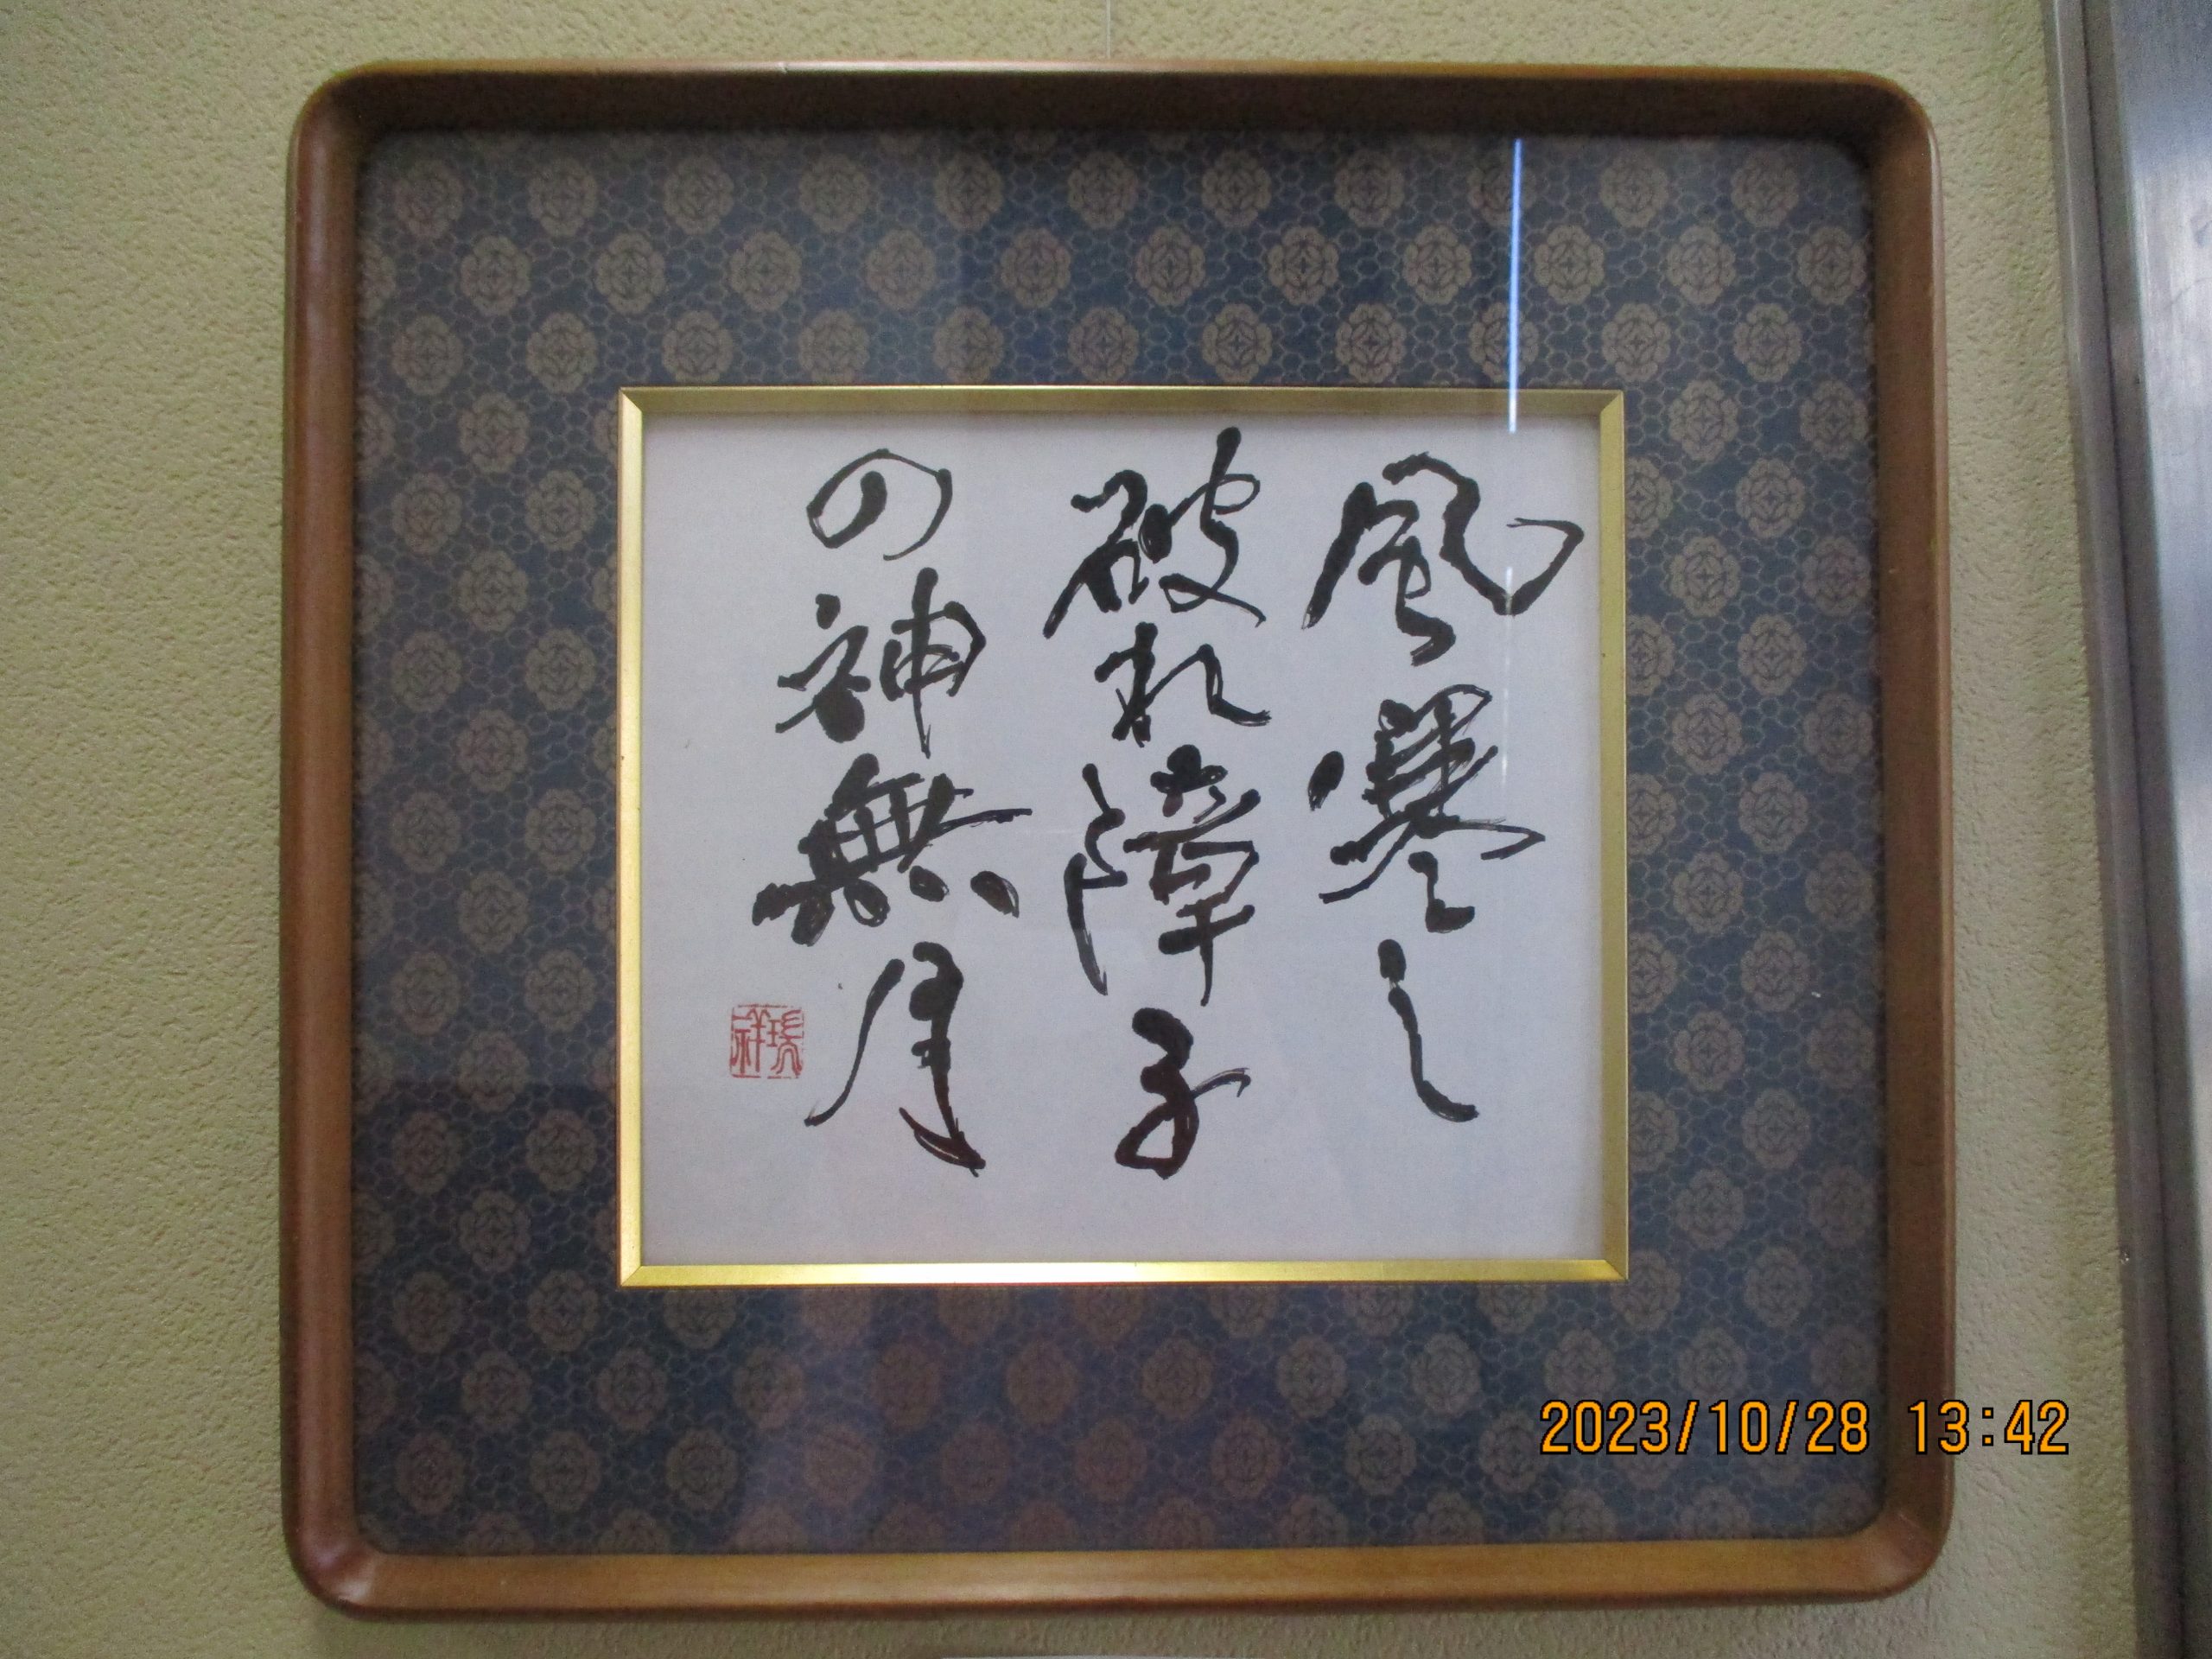 風寒し
破れ障子
の神無月
瑞祥
2023/10/28 13:42